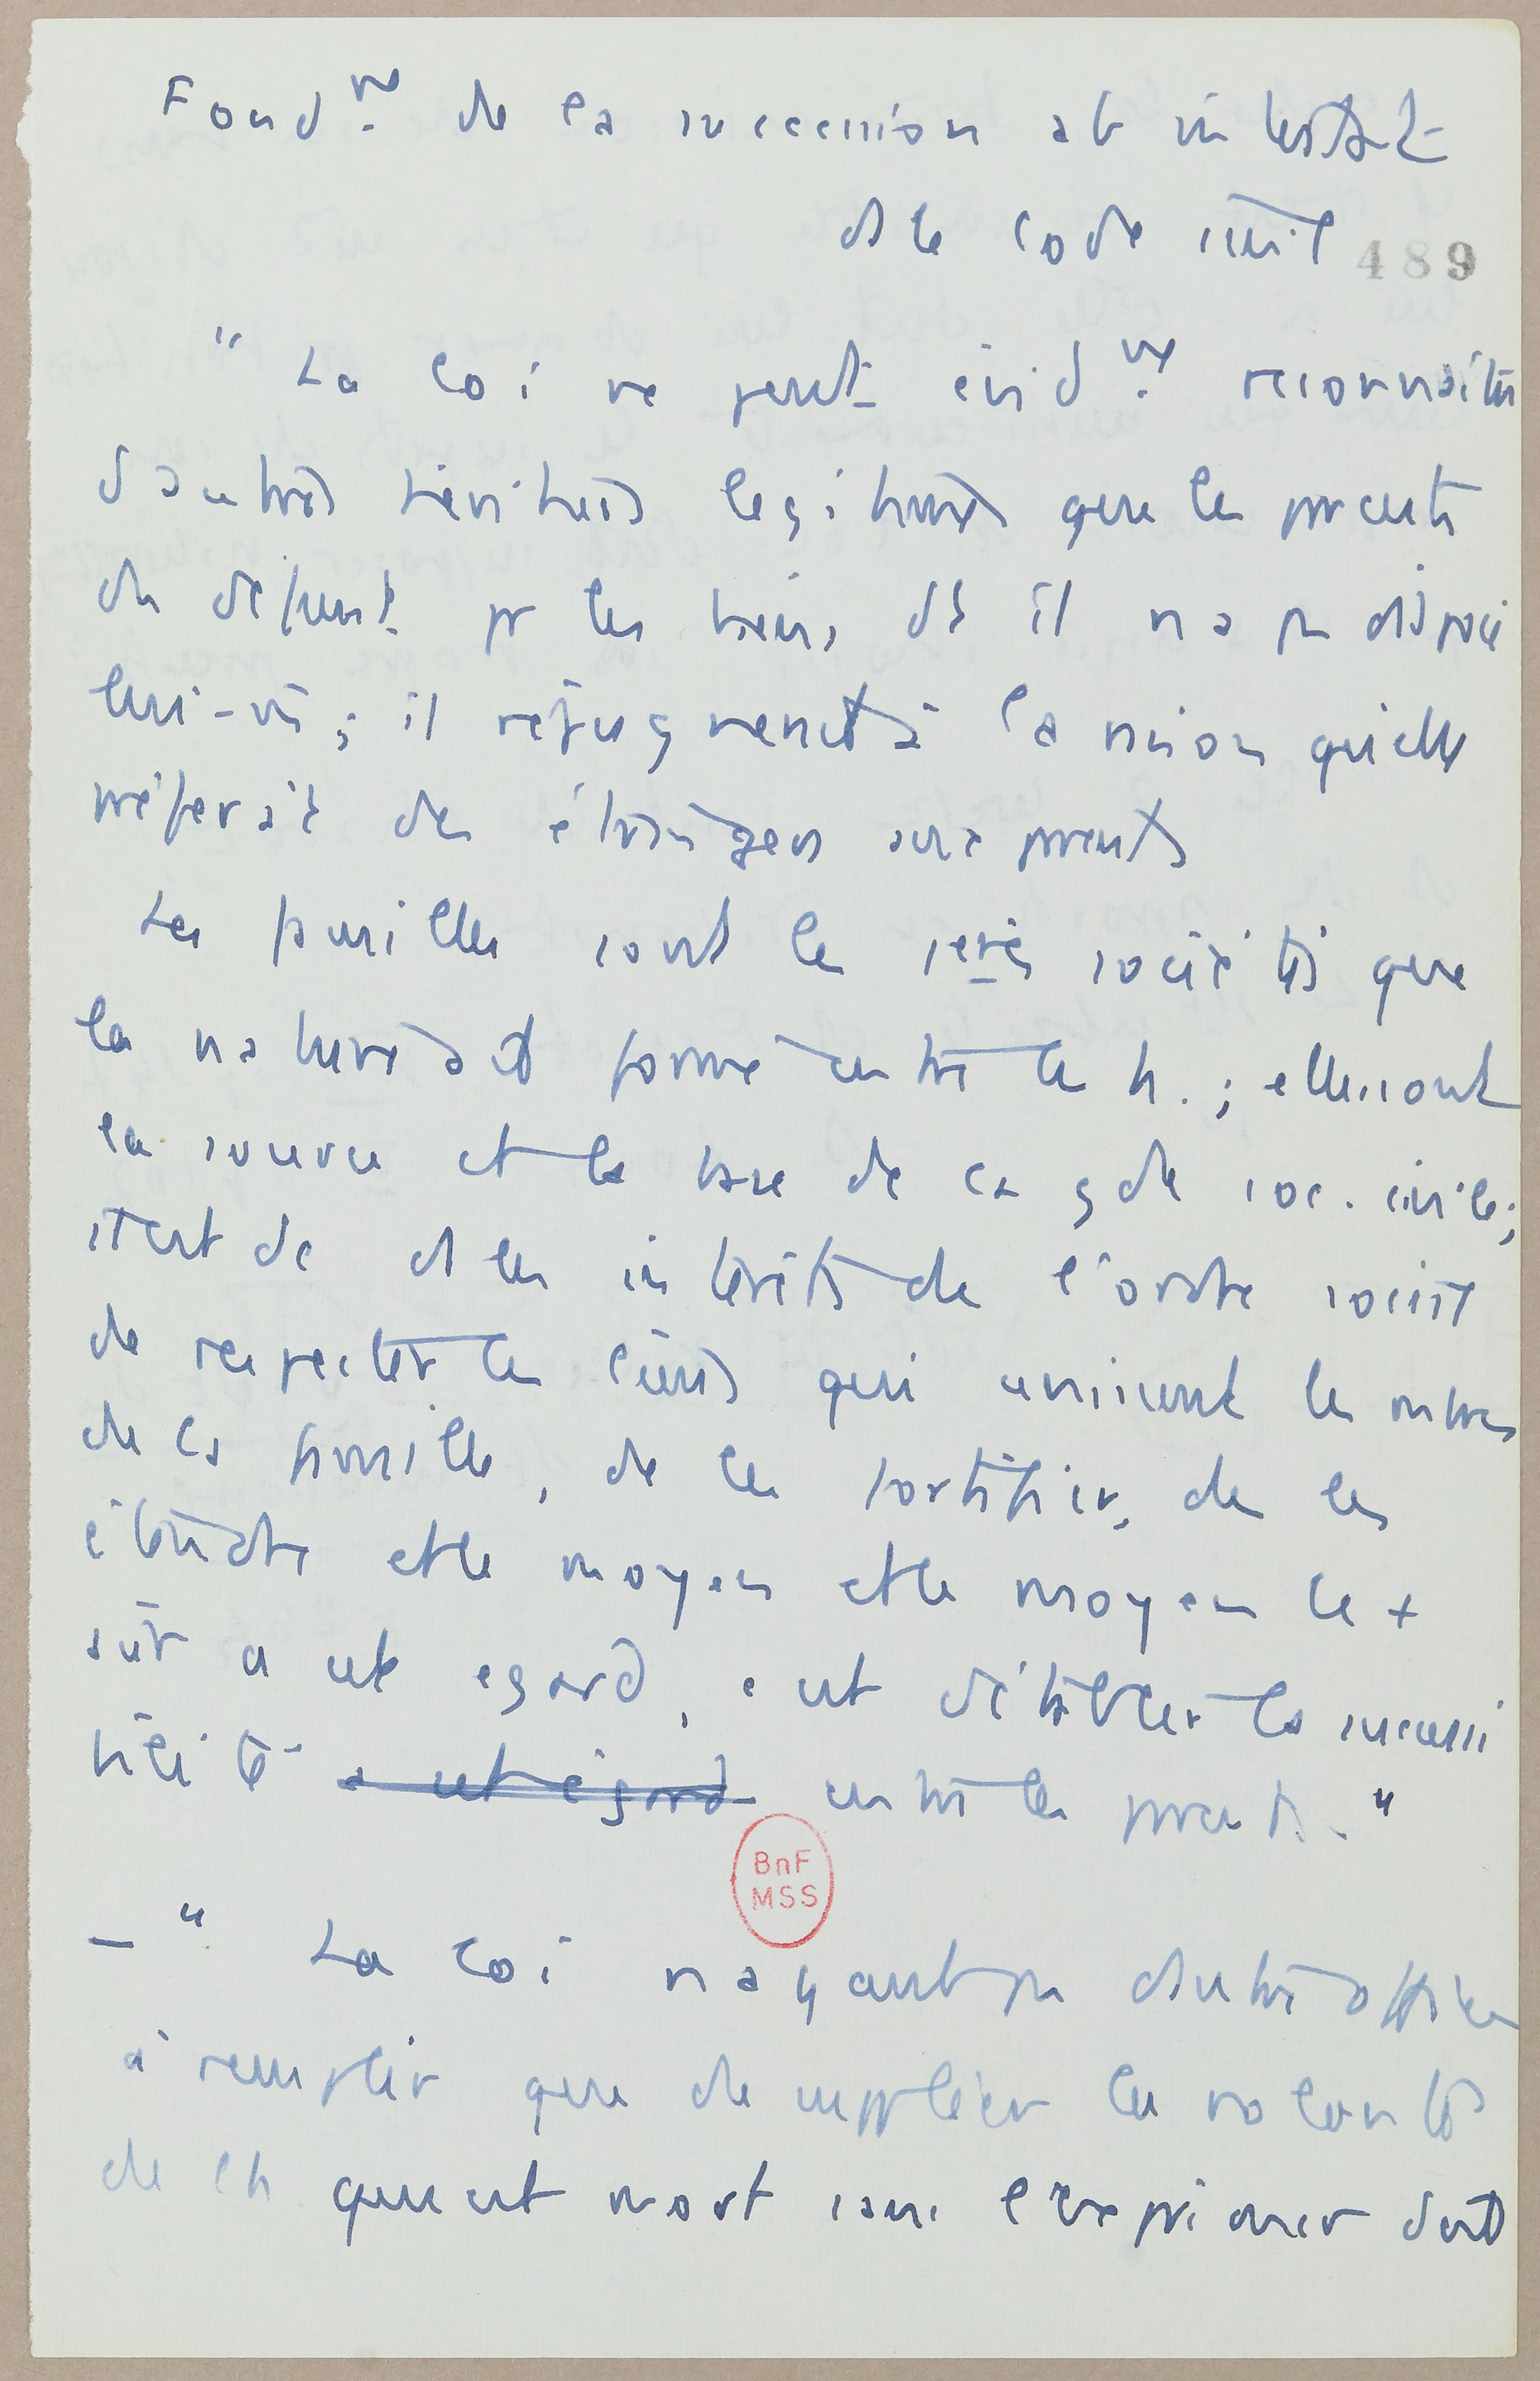 Fond^nt de la succession ab intestat
ds le code civil
489
" La loi ne peut évid^nt reconnaître
d'autres héritiers légitimes que les parents
du défunt pr les biens dt il n'a pas disposé
lui-m̂ ; il répugnerait à la raison qu'elle
préférait des étrangers aux parents
Les familles sont les 1eres sociétés que
la nature ait formé entre les h. ; elles sont
la source et la base de la gde soc. civile ;
il est dc ds les intérêts de l'ordre social
de respecter les liens qui unissent les mbres
de la famille, de les fortifier, de les
étendre et le moyen et le moyen le +
sûr a cet égard, c'est d'établir la successi
bilité a cet égard entre les parents. "
BnF
MSS
– " La loi n'ayant pas d'autre office
à remplir que de suppléer les volontés
de l'h. qui est mort sans l'exprimer doit